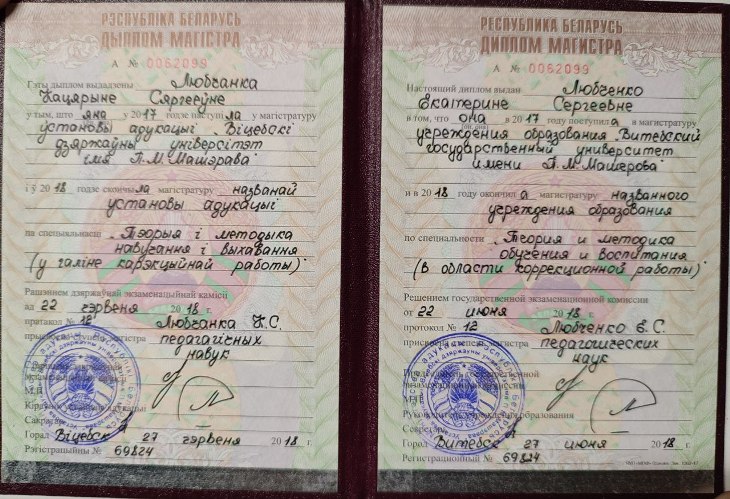 РЭСПУБЛІКА БЕЛАРУСЬ
ДЫПЛОМ МАГІСТРА
А № 0062099
Гэты дыплом выдадзены Любчанка
Кацярыне Сяргееўне
у тым, што яна у 2017 годзе наступіла у магістратуру
установы адукацыі „Віцебскі
дзяржаўны універсітэт
імя П.М.Машэрава"
і ў 2018 годзе скончыла магістратуру названай
установы адукацыі
па спецыяльнасці „Тэорыя і методыка
навучання і выхавання
(у галіне карэкцыйнай работы)"
Рашэннем дзяржаўнай экзаменацыйнай камісіі
ад 22 чэрвеня 2018 г.
пратакол № 12 Любчанка К.С.
педагагічных
навук
М.П.
Сакратар
Горад Віцебск 27 чэрвеня 2018 г.
Рэгістрацыйны № 69824
РЕСПУБЛИКА БЕЛАРУСЬ
ДИПЛОМ МАГИСТРА
А № 0062099
Настоящий диплом выдан Любченко
Екатерине Сергеевне
в том, что она в 2017 году поступила в магистратуру
учреждения образования „Витебский
государственный университет
имени П.М.Машерова"
и в 2018 году окончила магистратуру названного
учреждения образования
по специальности „Теория и методика
обучения и воспитания
(в области коррекционной работы)"
Решением государственной экзаменационной комиссии
от 22 июня 2018 г.
протокол № 12 Любченко Е.С.
педагогических
наук
М.П.
Руководитель учреждения образования
Секретарь
Город Витебск 27 июня 2018 г.
Регистрационный № 69824